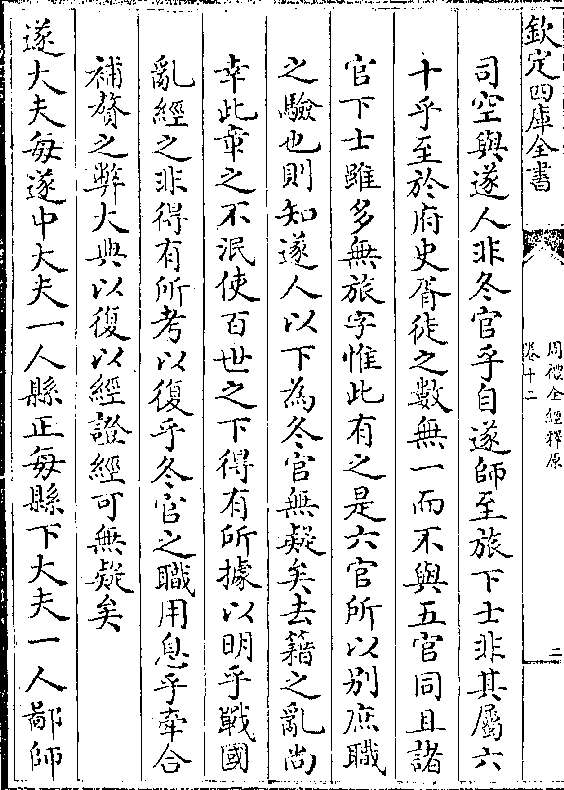 欽定四庫全書
周禮全經釋原
卷十二
二
司空與遂人非冬官乎自遂師至旅下士非其屬六
十乎至於府史胥徒之數無一而不與五官同且諸
官下士雖多無旅字惟此有之是六官所以別庶職
之驗也則知遂人以下為冬官無疑矣去籍之亂尚
幸此章之不泯使百世之下得有所據以明乎戰國
亂經之非得有所考以復乎冬官之職用息乎牽合
補贅之弊大典以復以經證經可無疑矣
遂大夫每遂中大夫一人縣正每縣下大夫一人鄙師